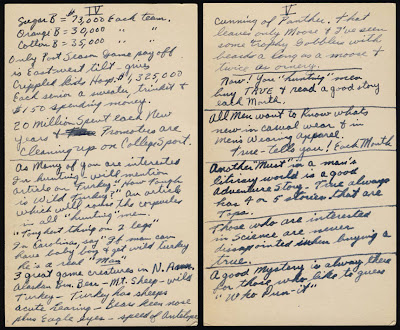 IV
Sugar B = 73,000 Each team.
Orange B = 30,000 " "
Cotton B = 35,000 " "
Only Post Season Game pay off
is East-west tilt - gives
Crippled Kids Hosp. $1,525,000
Each senior a sweater, trinket &
$1.50 spending money.
20 Million Spent each New
Years & Promoters are
Cleaning up on College Sport.
As Many of you are interested
In hunting will mention
article on Turkey! "How Tough
is Wild Turkey." An article
which will raise the corpuscles
in all "hunting" men.
"Toughest thing on 2 legs"
In Carolinas, say "If man can
have baby boy & get wild turkey
he's a real "Man"
5 great game creatures in N. Amer.
Alaskan Brn. Bear - Mt. Sheep - wild
Turkey - Turkey has sheeps
acute hearing - Bears keen nose
plus Eagle Eyes - speed of Antelope
V
Cunning of Panther. & that
leaves only Moose & I've seen
some trophy Gobblers with
beards as long as a moose &
twice as ornery.
Now! You "hunting" men
buy TRUE & read a good story
each Month.
All Men want to know whats
new in casual wear & in
Men's Wearing Apparel
True - tells you! Each Month
Another "Must" in a man's
literary world is a good
Adventure Story. True always
has 4 or 5 stories that are
Tops.
Those who are interested
in Science are never
disappointed when buying a
true.
A good Mystery is always there
for those who like to guess
"Who Dun-it"